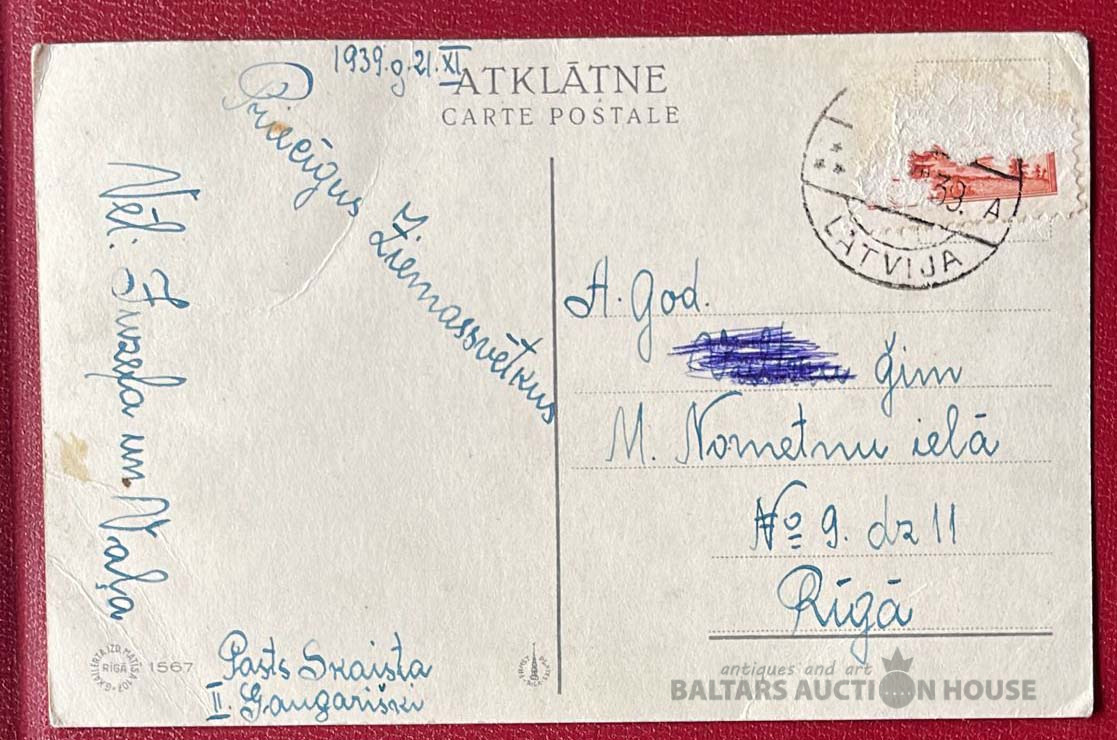 1939.g.21.XI
ATKLĀTNE
CARTE POSTALE
Priecīgus
Ziemassvētkus
Vēl:
un Maļa
Pasts Skaista
II. Gaugariški
A. God.
ģim
M. Nometnu ielā
No 9. dz 11
Rīgā
39. A
LATVIJA
RĪGĀ 1567
antiques and art
BALTARS AUCTION HOUSE